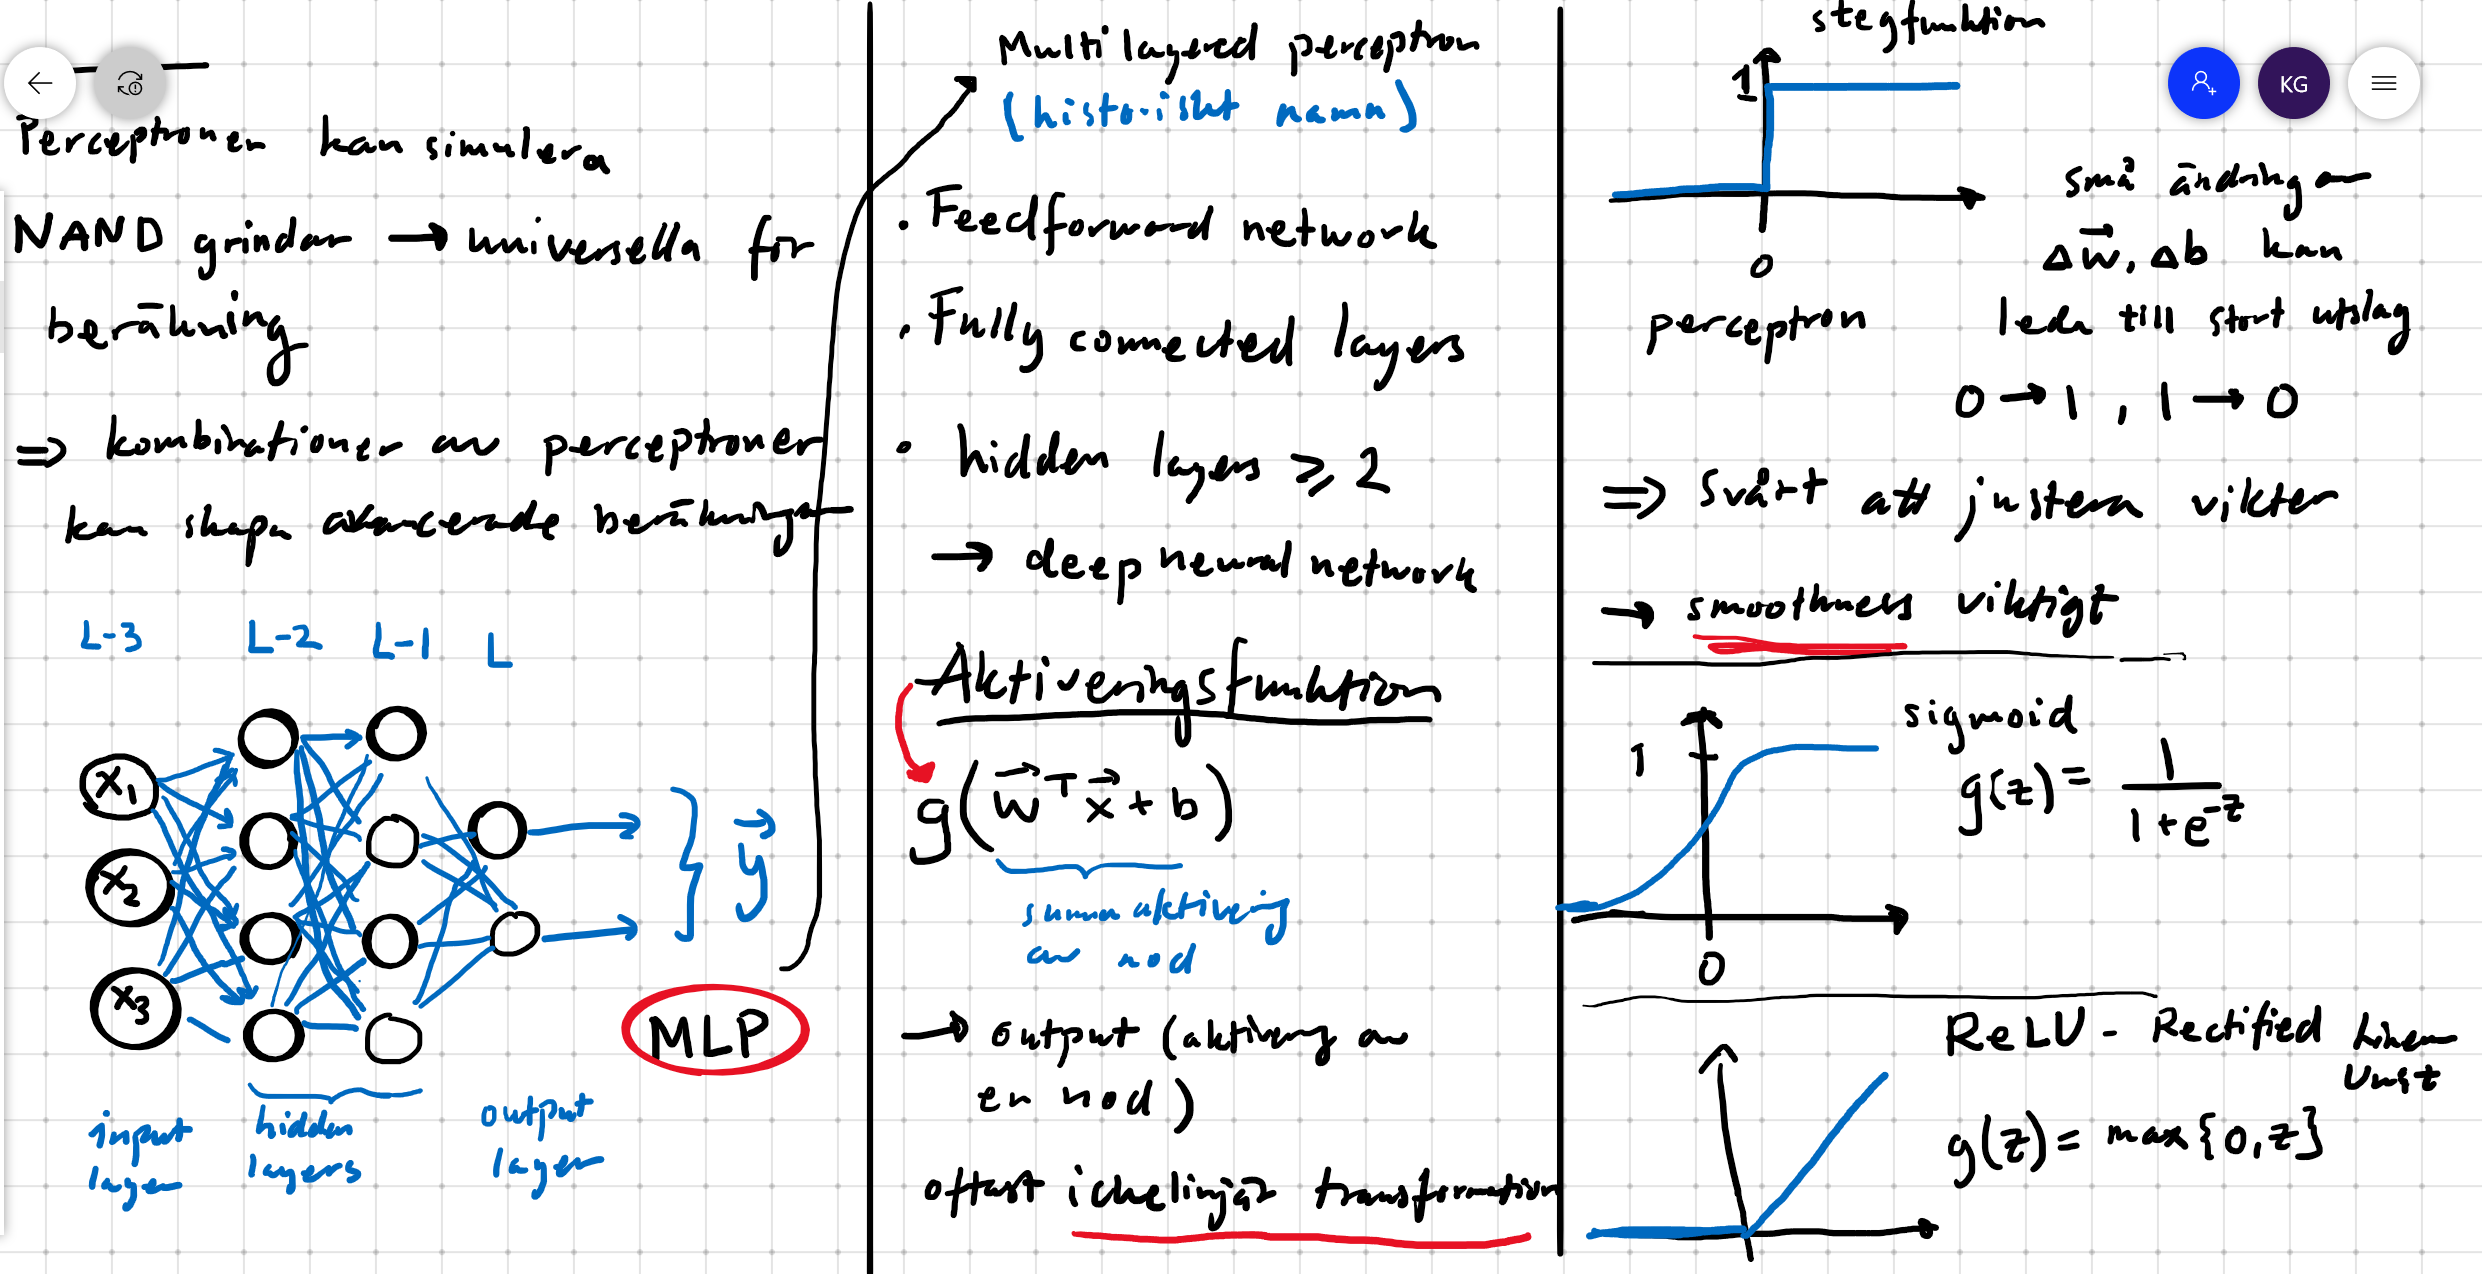 Perceptroner kan simulera
NAND grindar → universella för
beräkning
⇒ kombinationer av perceptroner
kan skapa avancerade beräkningar
L-3 L-2 L-1 L
x₁
x₂
x₃
} y⃗
MLP
input
layer
hidden
layers
output
layer
Multilayered perceptron
(historiskt namn)
• Feedforward network
• Fully connected layers
• hidden layers ≥ 2
→ deep neural network
Aktiveringsfunktion
g(w⃗ᵀx⃗ + b)
summa aktivering
av nod
→ output (aktivering av
en nod)
oftast ickelinjär transformation
stegfunktion
1
0
perceptron
små ändringar
Δw⃗, Δb kan
leda till stort utslag
0 → 1, 1 → 0
⇒ Svårt att justera vikter
→ smoothness viktigt
sigmoid
1
g(z) = 1/(1+e^-z)
0
ReLU - Rectified Linear
Unit
g(z) = max{0,z}
KG